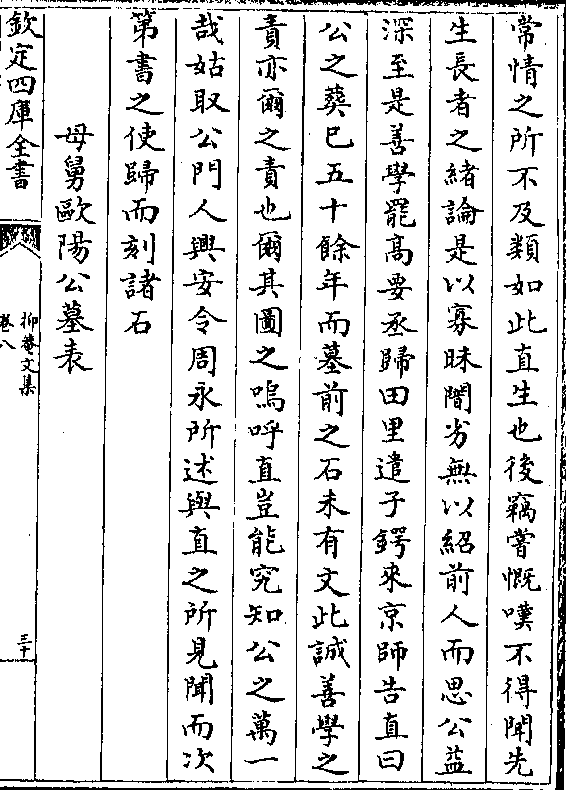 常情之所不及類如此直生也後竊嘗慨嘆不得聞先
生長者之緒論是以寡昧闇劣無以紹前人而思公益
深至是善學罷高要丞歸田里遣子鍔來京師告直曰
公之葬已五十餘年而墓前之石未有文此誠善學之
責亦爾之責也爾其圖之嗚呼直豈能究知公之萬一
哉姑取公門人興安令周永所述與直之所見聞而次
第書之使歸而刻諸石
母舅歐陽公墓表
欽定四庫全書
抑菴文集
卷八
三十